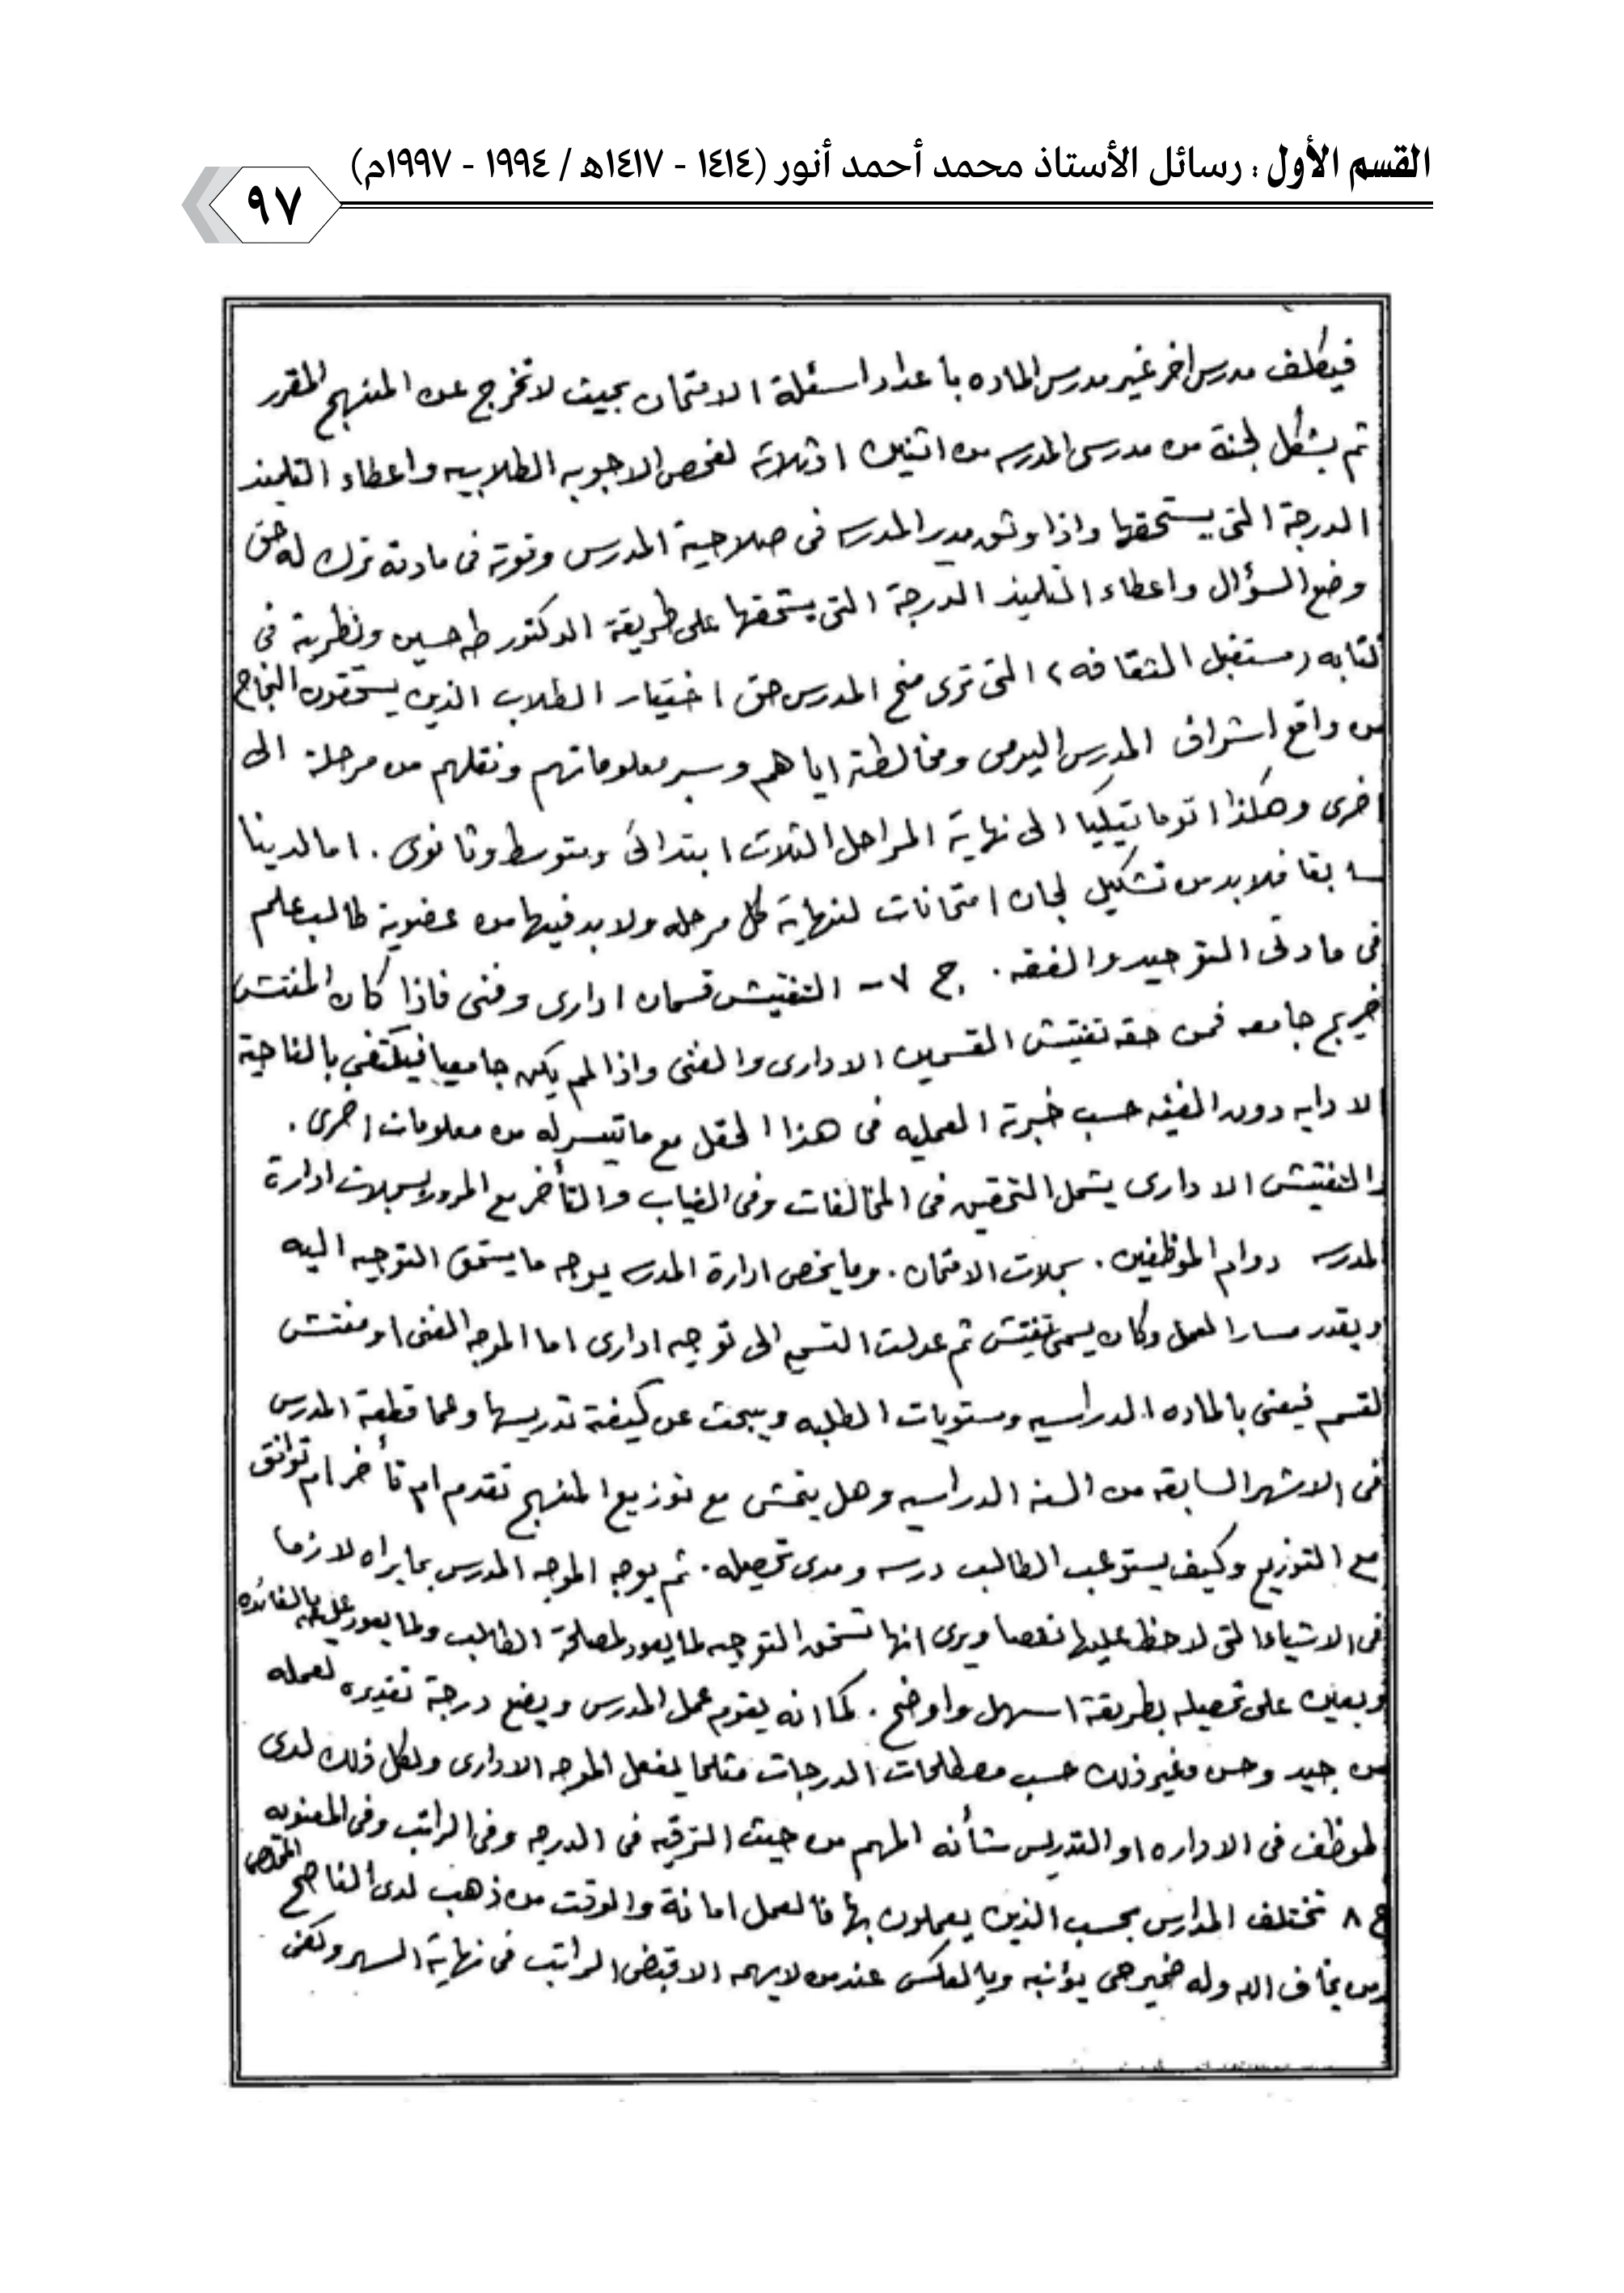 القسم الأول : رسائل الأستاذ محمد أحمد أنور (١٤١٤ - ١٤١٧هـ / ١٩٩٤ - ١٩٩٧م)
٩٧
فيكلف مدرس اخر غير مدرس الماده باعداد اسئلة الامتحان بحيث لا تخرج عن المنهج المقرر
ثم يشكل لجنة من مدرسي المدرسه من اثنين او ثلاثة لفحص الاجوبه الطلابيه واعطاء التلميذ
الدرجة التي يستحقها واذا وثق مدير المدرسه في صلاحية المدرس وقوته في مادته ترك له حق
وضع السؤال واعطاء التلميذ الدرجة التي يستحقها على طريقة الدكتور طه حسين ونظريته في
كتابه (مستقبل الثقافه) التي ترى منح المدرس حق اختيار الطلاب الذين يستحقون النجاح
من واقع اشراف المدرس اليومي ومخالطته اياهم وسبر معلوماتهم ونقلهم من مرحلة الى
اخرى وهكذا اتوماتيكيا الى نهاية المراحل الثلاث ابتدائي ومتوسط وثانوي . اما لدينا
سابقا فلا بد من تشكيل لجان امتحانات لنهاية كل مرحله ولا بد فيها من عضوية طالب علم
في مادتي التوحيد والفقه . ج ٧ - التفتيش قسمان اداري وفني فاذا كان المفتش
خريج جامعه فمن حقه تفتيش القسمين الاداري والفني واذا لم يكن جامعيا فيكتفي بالناحية
الادايه دون الفنيه حسب خبرته العمليه في هذا الحقل مع ما تيسر له من معلومات اخرى .
والتفتيش الاداري يشمل التحقيق في المخالفات وفي الغياب والتأخر مع المرور بسجلات ادارة
المدرسه دوام الموظفين . سجلات الامتحان . وما يخص ادارة المدرسه يوجه ما يستحق التوجيه اليه
ويقدر مسار العمل وكان يسمى تفتيش ثم عدلت التسميه الى توجيه اداري اما الموجه الفني او مفتش
القسم فيعنى بالماده الدراسيه ومستويات الطلبه ويبحث عن كيفية تدريسها وعما قطعه المدرس
في الاشهر السابقه من السنه الدراسيه وهل يتمشى مع توزيع المنهج تقدم ام تأخر ام توافق
مع التوزيع وكيف يستوعب الطالب درسه ومدى تحصيله . ثم يوجه الموجه المدرس بما يراه لازما
في الاشياء التي لاحظ عليها نقصا ويرى انها تستحق التوجيه لما يعود لمصلحة الطالب ولما يعود عليه بالفائده
ويعين على تحصيله بطريقة اسهل واوضح . كما انه يقوم عمل المدرس ويضع درجة تقديره لعمله
من جيد وحسن وغير ذلك حسب مصطلحات الدرجات مثلما يفعل الموجه الاداري ولكل ذلك لدى
الموظف في الاداره او التدريس شأنه المهم من حيث الترقيه في الدرجه وفي الراتب وفي المعنويه
ج ٨ تختلف المدارس بحسب الذين يعملون بها فالعمل امانة والوقت من ذهب لدى الناصح المخلص
ومن يخاف الله وله ضمير حي يؤنبه وبالعكس عند من لا يهمه الا قبض الراتب في نهاية الشهر وكفى